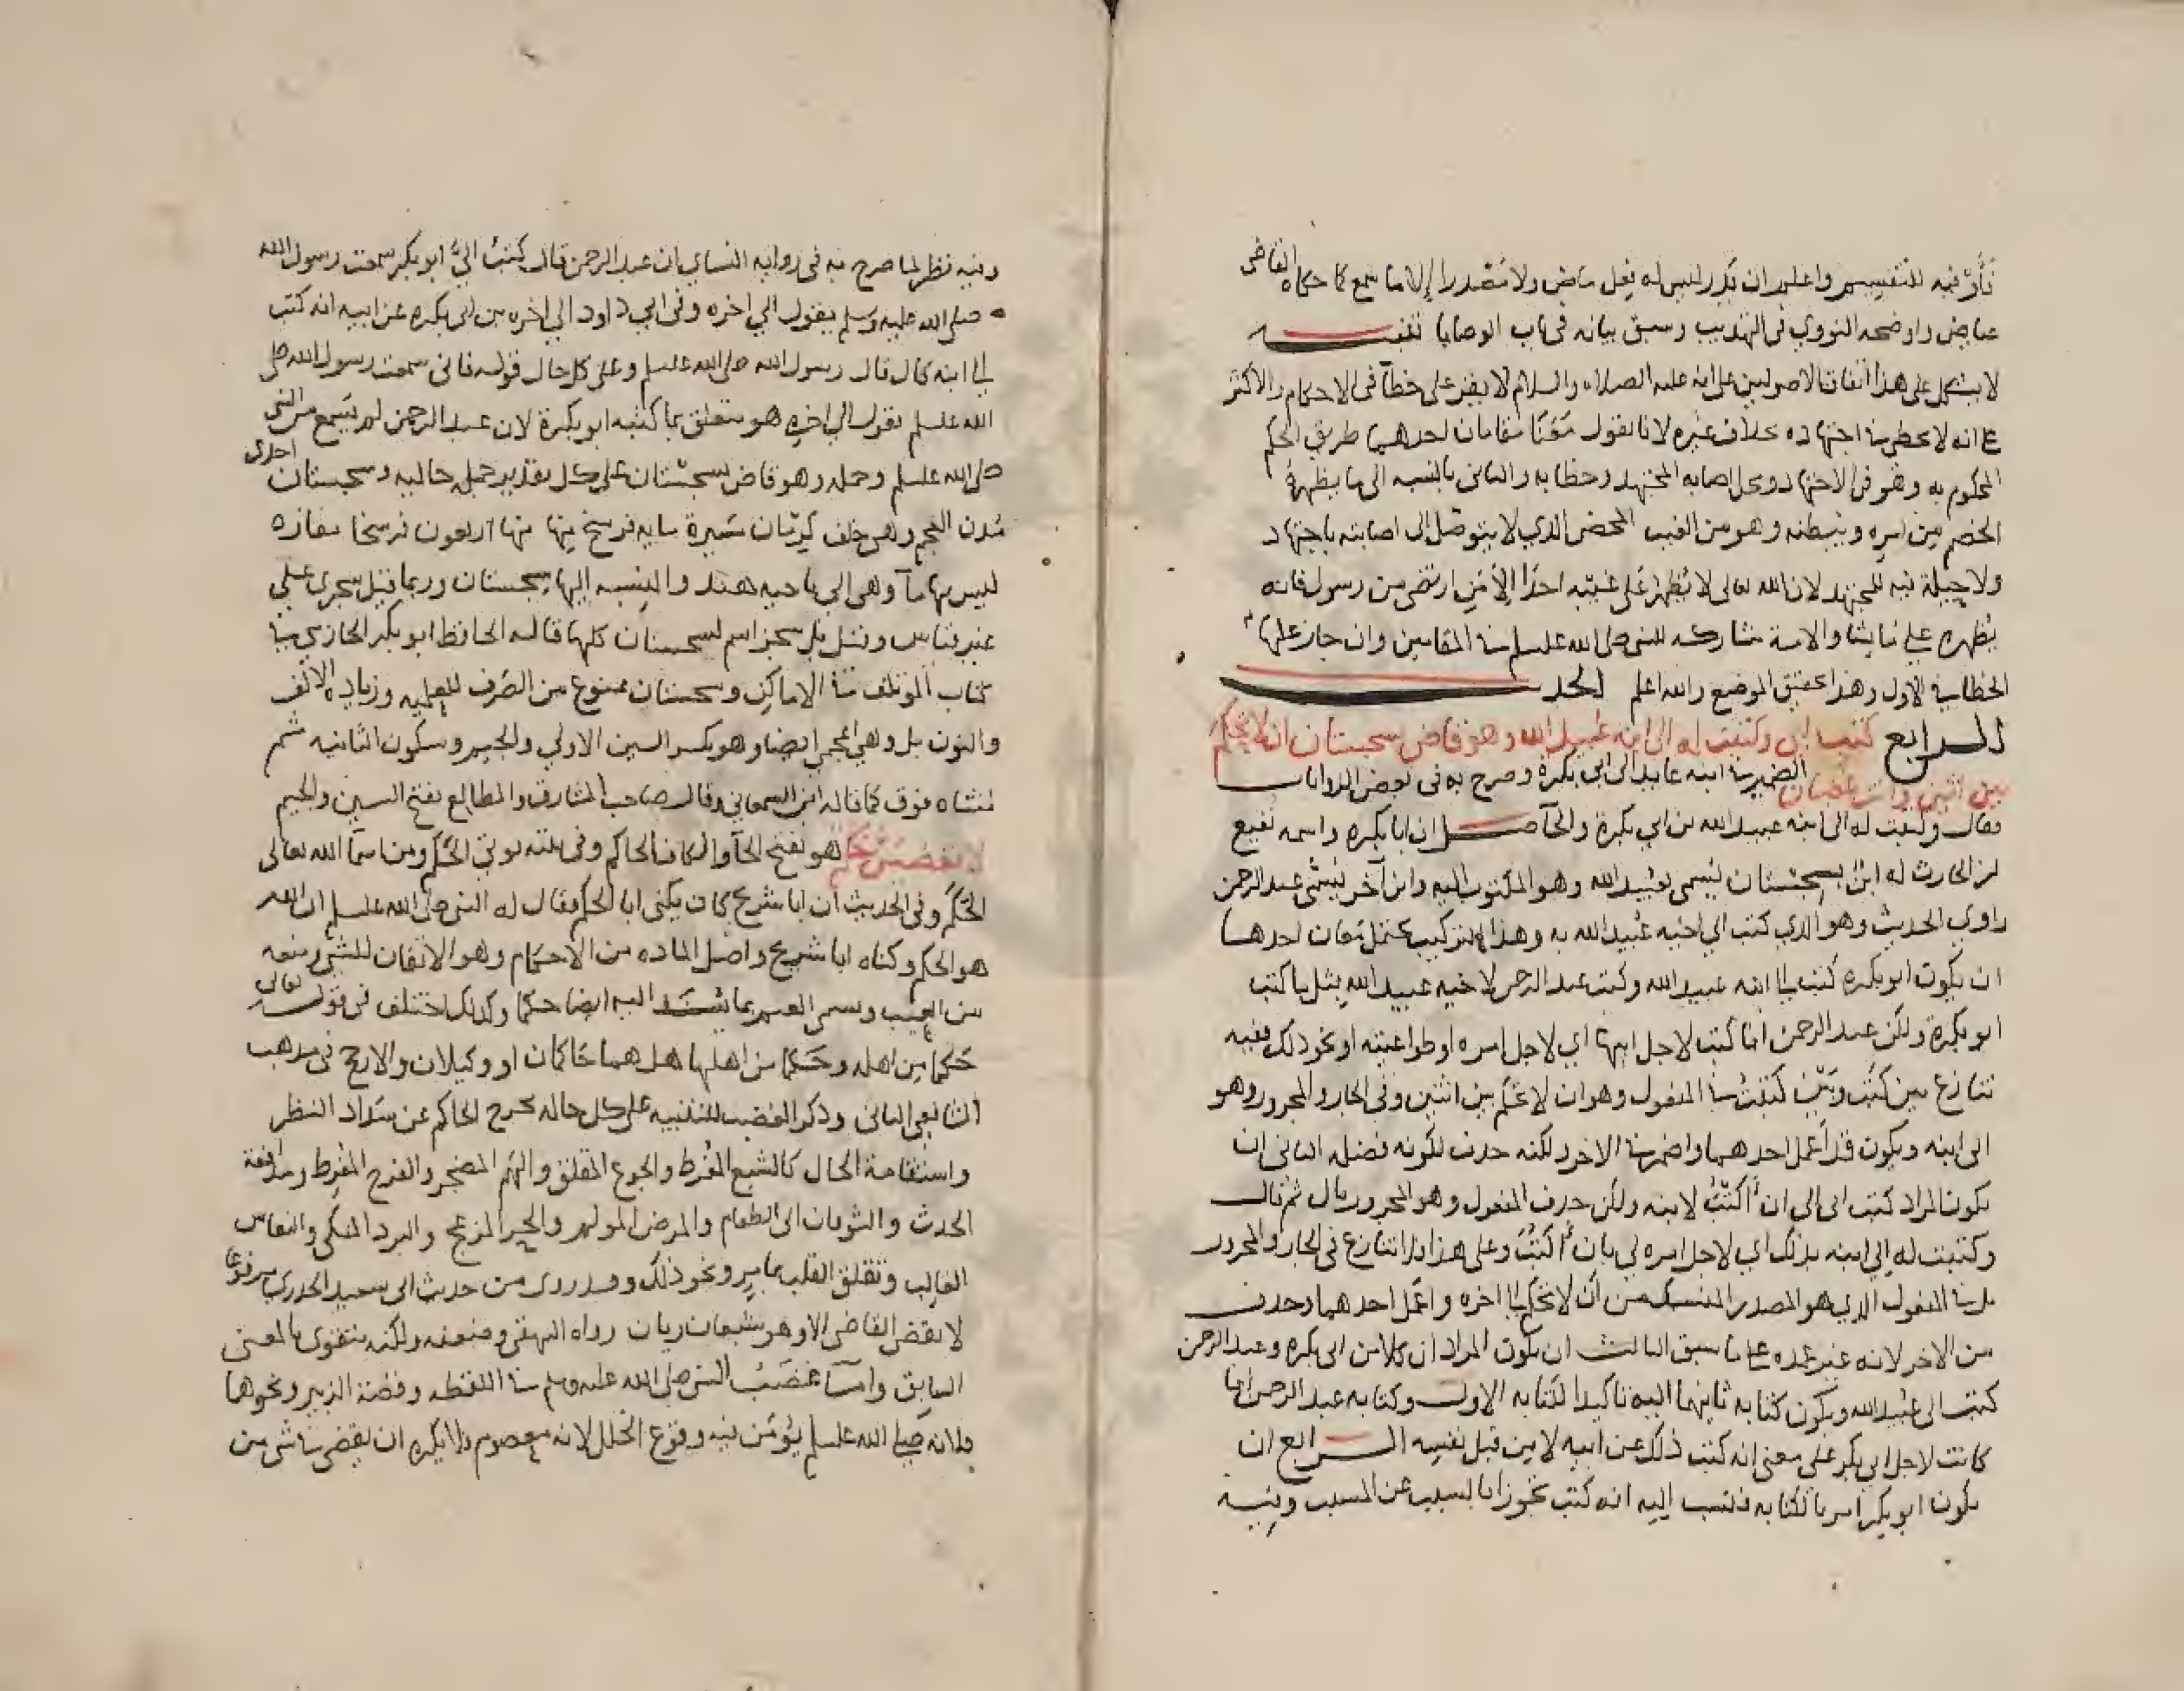 فيه للتقسيم واعلم ان يذر ليس له فعل ماض ولا مصدرا إلا ما سمع كما حكاه القاضي
عياض واوضحه النووي في التهذيب وسبق بيانه في باب الوصايا تنبيه
لا يشكل على هذا اتفاق الاصوليين على انه عليه الصلاه والسلام لا يقر على خطأ في الاحكام والاكثر
ع انه لا يخطي في اجتهاده بخلاف غيره لانا نقول هنا مقامان احدهما طريق الحكم
المحكوم به وهو في الاجتهاد ومحل اصابه المجتهد وخطايه والثاني بالنسبه الى ما يظهره
الخصم من امره ويبطنه وهو من الغيب المحض الذي لا يتوصل الى اصابته باجتهاد
ولا حيلة فيه للمجتهد لان الله تعالى لا يظهر على غيبه احدا إلا من ارتضى من رسول فانه
يظهره على ما يشا والامة مشاركه للنبي صلى الله عليه وسلم في المقامين وان جاز عليها
الخطا في الاول وهذا تحقيق الموضع والله اعلم الحد
الرابع كتب ابي وكتبت له الى ابنه عبيد الله وهو قاض بسجستان ان لا تحكم
بين اثنين وانت غضبان الضمير في ابنه عايد الى ابي بكرة وصرح به في بعض الروايات
فقال وكتبت له الى ابنه عبيد الله بن ابي بكرة والحاصل ان ابا بكره واسمه نفيع
بن الحارث له ابن بسجستان يسمى عبيد الله وهو المكتوب اليه وابن آخر يسمى عبد الرحمن
راوى الحديث وهو الذي كتب الي اخيه عبيد الله به وهذا التركيب يحتمل معان احدها
ان يكون ابو بكره كتب الى ابنه عبيد الله وكتب عبد الرحمن لاخيه عبيد الله بمثل ما كتب
ابو بكرة ولكن عبد الرحمن انما كتب لاجل ابيهما اي لاجل امره او طواعيته او نحو ذلك ففيه
تنازع بين كتب وبين كتبت في المفعول وهو ان لا تحكم بين اثنين وفي الجار والمجرور وهو
الى ابنه ويكون قد أعمل احدهما واضمر في الاخر لكنه حذف لكونه فضله الثاني ان
يكون المراد كتب ابي الي ان أكتب لابنه ولكن حذف المفعول وهو المجرور بالى ثم قال
وكتبت له إلى ابنه بذلك اي لاجل امره لي بان أكتب وعلى هذا فلا تنازع في الجار والمجرور
بل في المفعول الذي هو المصدر المنسبك من أن لا تحكم الى اخره واعمل احدهما وحذف
من الاخر لانه غير عمده على ما سبق الثالث ان يكون المراد ان كلا من ابي بكره وعبد الرحمن
كتب الى عبيد الله ويكون كتابه ثانيهما اليه تاكيدا لكتابه الاول وكتابه عبد الرحمن انما
كانت لاجل ابي بكر على معنى انه كتب ذلك عن ابيه لا من قبل نفسه الرابع ان
يكون ابو بكر امر بالكتابه فنسب إليه انه كتب تجوزا بالسبب عن المسبب وفيه
وفيه نظر لما صرح به في روايه النساي ان عبد الرحمن قال كتب اليّ ابو بكر سمعت رسول الله
صلى الله عليه وسلم يقول الي اخره وفي ابي داود الي اخره بن ابي بكره عن ابيه انه كتب
الي ابنه قال قال رسول الله صلى الله عليه وسلم وعلى كل حال قوله فاني سمعت رسول الله صلى
الله عليه وسلم يقول الي اخره هو متعلق بما كتبه ابو بكرة لان عبد الرحمن لم يسمع من النبي
صلى الله عليه وسلم وجمله وهو قاض بسجستان على كل تقدير جملة حاليه وسجستان احدى
مدن العجم وهي خلف كرمان مسيرة مايه فرسخ منها اربعون فرسخا مفازه
ليس بها مآ وهي الى ناحيه هند والنسبه إليها سجستان وربما قيل سجزى على
غير قياس وقيل بل سجز اسم لسجستان كلها قاله الحافظ ابو بكر الحازمي في
كتاب المؤتلف في الاماكن وسجستان ممنوع من الصرف للعلميه وزياده الالف
والنون بل وهي أعجمي ايضا وهو بكسر السين الاولي والجيم وسكون الثانيه ثم
مثناه فوق كما قاله ابن السمعاني وقال صاحب المشارق والمطالع بفتح السين والجيم
لا يقضين حكم هو بفتح الحآ والكاف الحاكم وفي بيته يوتي الحكم ومن اسمآ الله تعالى
الحكم وفي الحديث أن ابا شريح كان يكنى ابا الحكم فقال له النبي صلى الله عليه وسلم ان الله
هو الحكم وكناه ابا شريح واصل الماده من الأحكام وهو الاتقان للشي ومنعه
من العيب وسمى العيب ايضا حكما وكذلك اختلف في قوله تعالى
حكما من اهله وحكما من اهلها هل هما حاكمان او وكيلان والارجح في مذهب
الشافعي الثاني وذكر الغضب للتنبيه على كل حاله تخرج الحاكم عن سداد النظر
واستقامة الحال كالشبع المفرط والجوع المقلق والهم المضجر والفرح المفرط ومدافعة
الحدث والتوقان الى الطعام والمرض المولم والحر المزعج والبرد المنكي والنعاس
الغالب وتعلق القلب بامر ونحو ذلك وقد روى من حديث ابي سعيد الخدري مرفوعا
لا يقض القاضي الا وهو شبعان ريان رواه البيهقي وضعفه ولكنه يتقوى بالمعنى
السابق وامآ غضب النبي صلى الله عليه وسلم في اللقطه وقصة الزبير ونحوها
فلانه صلى الله عليه وسلم يؤمن فيه وقوع الخلل لانه معصوم فلا يكره ان يقضي في شي من